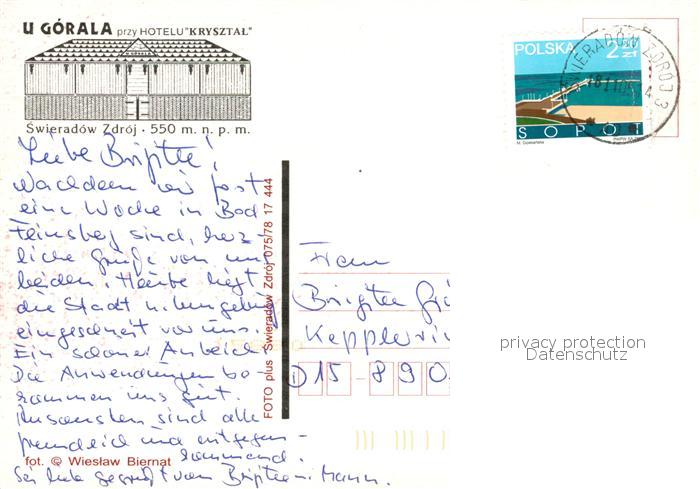 U GÓRALA przy HOTELU "KRYSZTAŁ"
Świeradów Zdrój · 550 m. n. p. m.
Liebe Brigitte!
Nachdem wir fast
eine Woche in Bad
Feinsberg sind, herz-
liche Grüße von uns
beiden. Heute liegt
die Stadt u. Umgebung
eingeschneit vor uns.
Ein schöner Anblick.
Die Anwendungen be-
kommen uns gut.
Ansonsten sind alle
freundlich und entgegen-
kommend.
Sei lieb gegrüßt von Brigitte u. Mann.
fot. © Wiesław Biernat
FOTO plus Świeradów Zdrój 075/78 17 444
POLSKA 2 zł
SOPOT
ŚWIERADÓW ZDRÓJ 3
Frau
Brigitte
D 15-890
privacy protection
Datenschutz